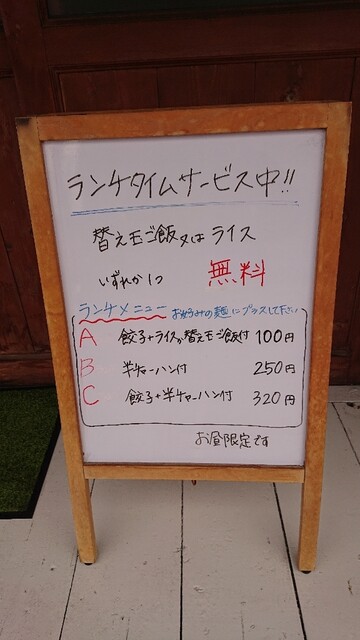 ランチタイムサービス中!!
替え玉ご飯又はライス
いずれか1つ 無料
ランチメニュー お好みの麺にプラスして下さい
A 餃子+ライスか替え玉ご飯付 100円
B 半チャーハン付 250円
C 餃子+半チャーハン付 320円
お昼限定です